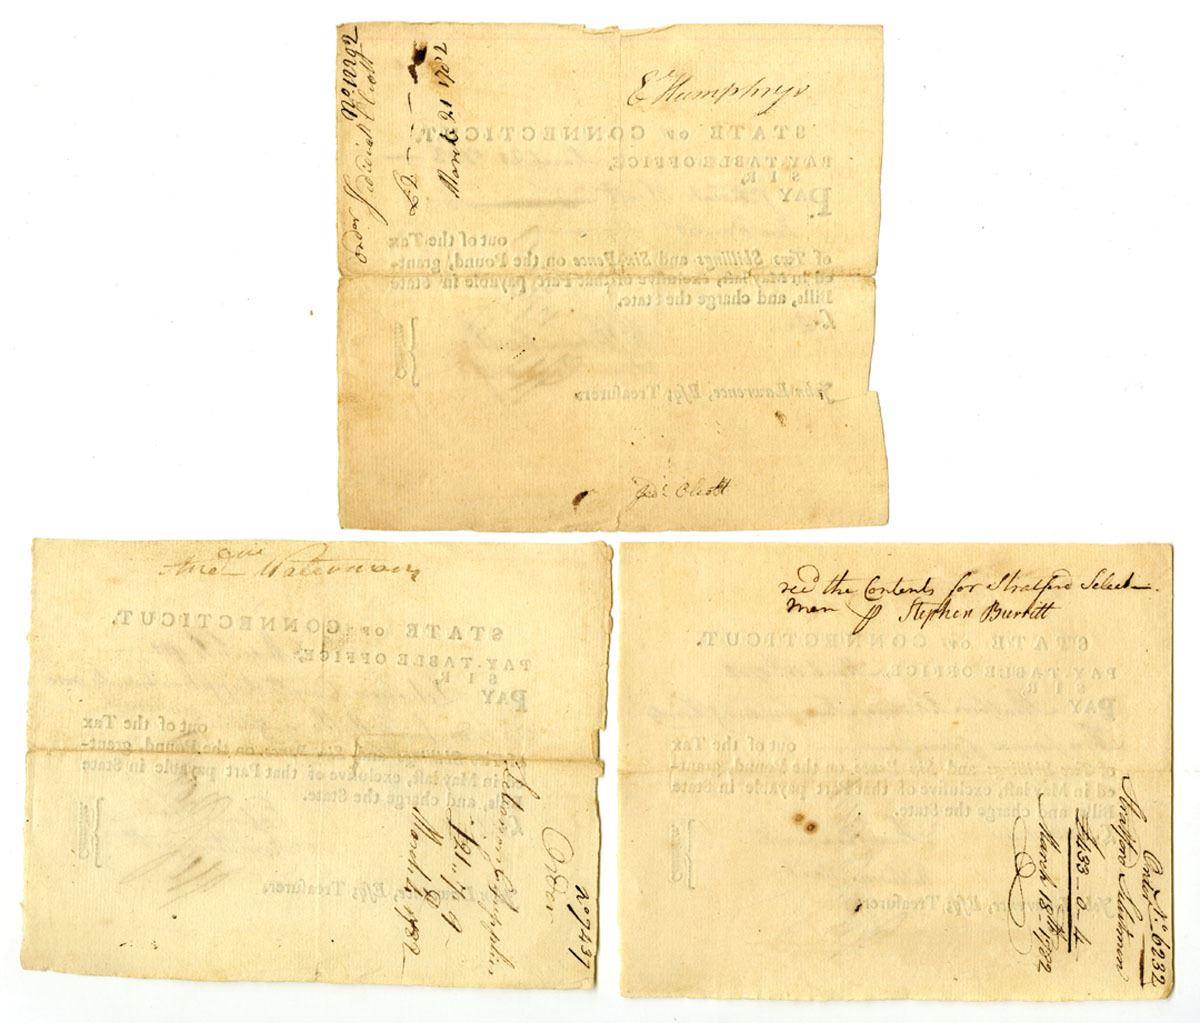 No. 12292
order Jedediah Olcott
March 21 1782
E Humphrys
STATE OF CONNECTICUT.
PAY-TABLE OFFICE,
SIR,
PAY
out of the Tax
of Two Shillings and Six Pence on the Pound, grant-
ed in May last, exclusive of that Part payable in State
Bills, and charge the State.
John Lawrence, Esq; Treasurer.
Jedh Olcott
Waterman
STATE OF CONNECTICUT.
PAY-TABLE OFFICE,
SIR,
PAY
out of the Tax
Shillings and Six Pence on the Pound, grant-
in May last, exclusive of that Part payable in State
Bills, and charge the State.
Lawrence, Esq; Treasurer.
No 7437
Order
Solomon
£21..19..9
March 1782
recd the Contents for Stratford Select-
men pr Stephen Burritt
STATE OF CONNECTICUT.
PAY-TABLE OFFICE,
SIR,
PAY
out of the Tax
of Two Shillings and Six Pence on the Pound, grant-
ed in May last, exclusive of that Part payable in State
Bills, and charge the State.
John Lawrence, Esq; Treasurer.
Order No 6232
Stratford Selectmen
£433-0-4
March 18th 1782